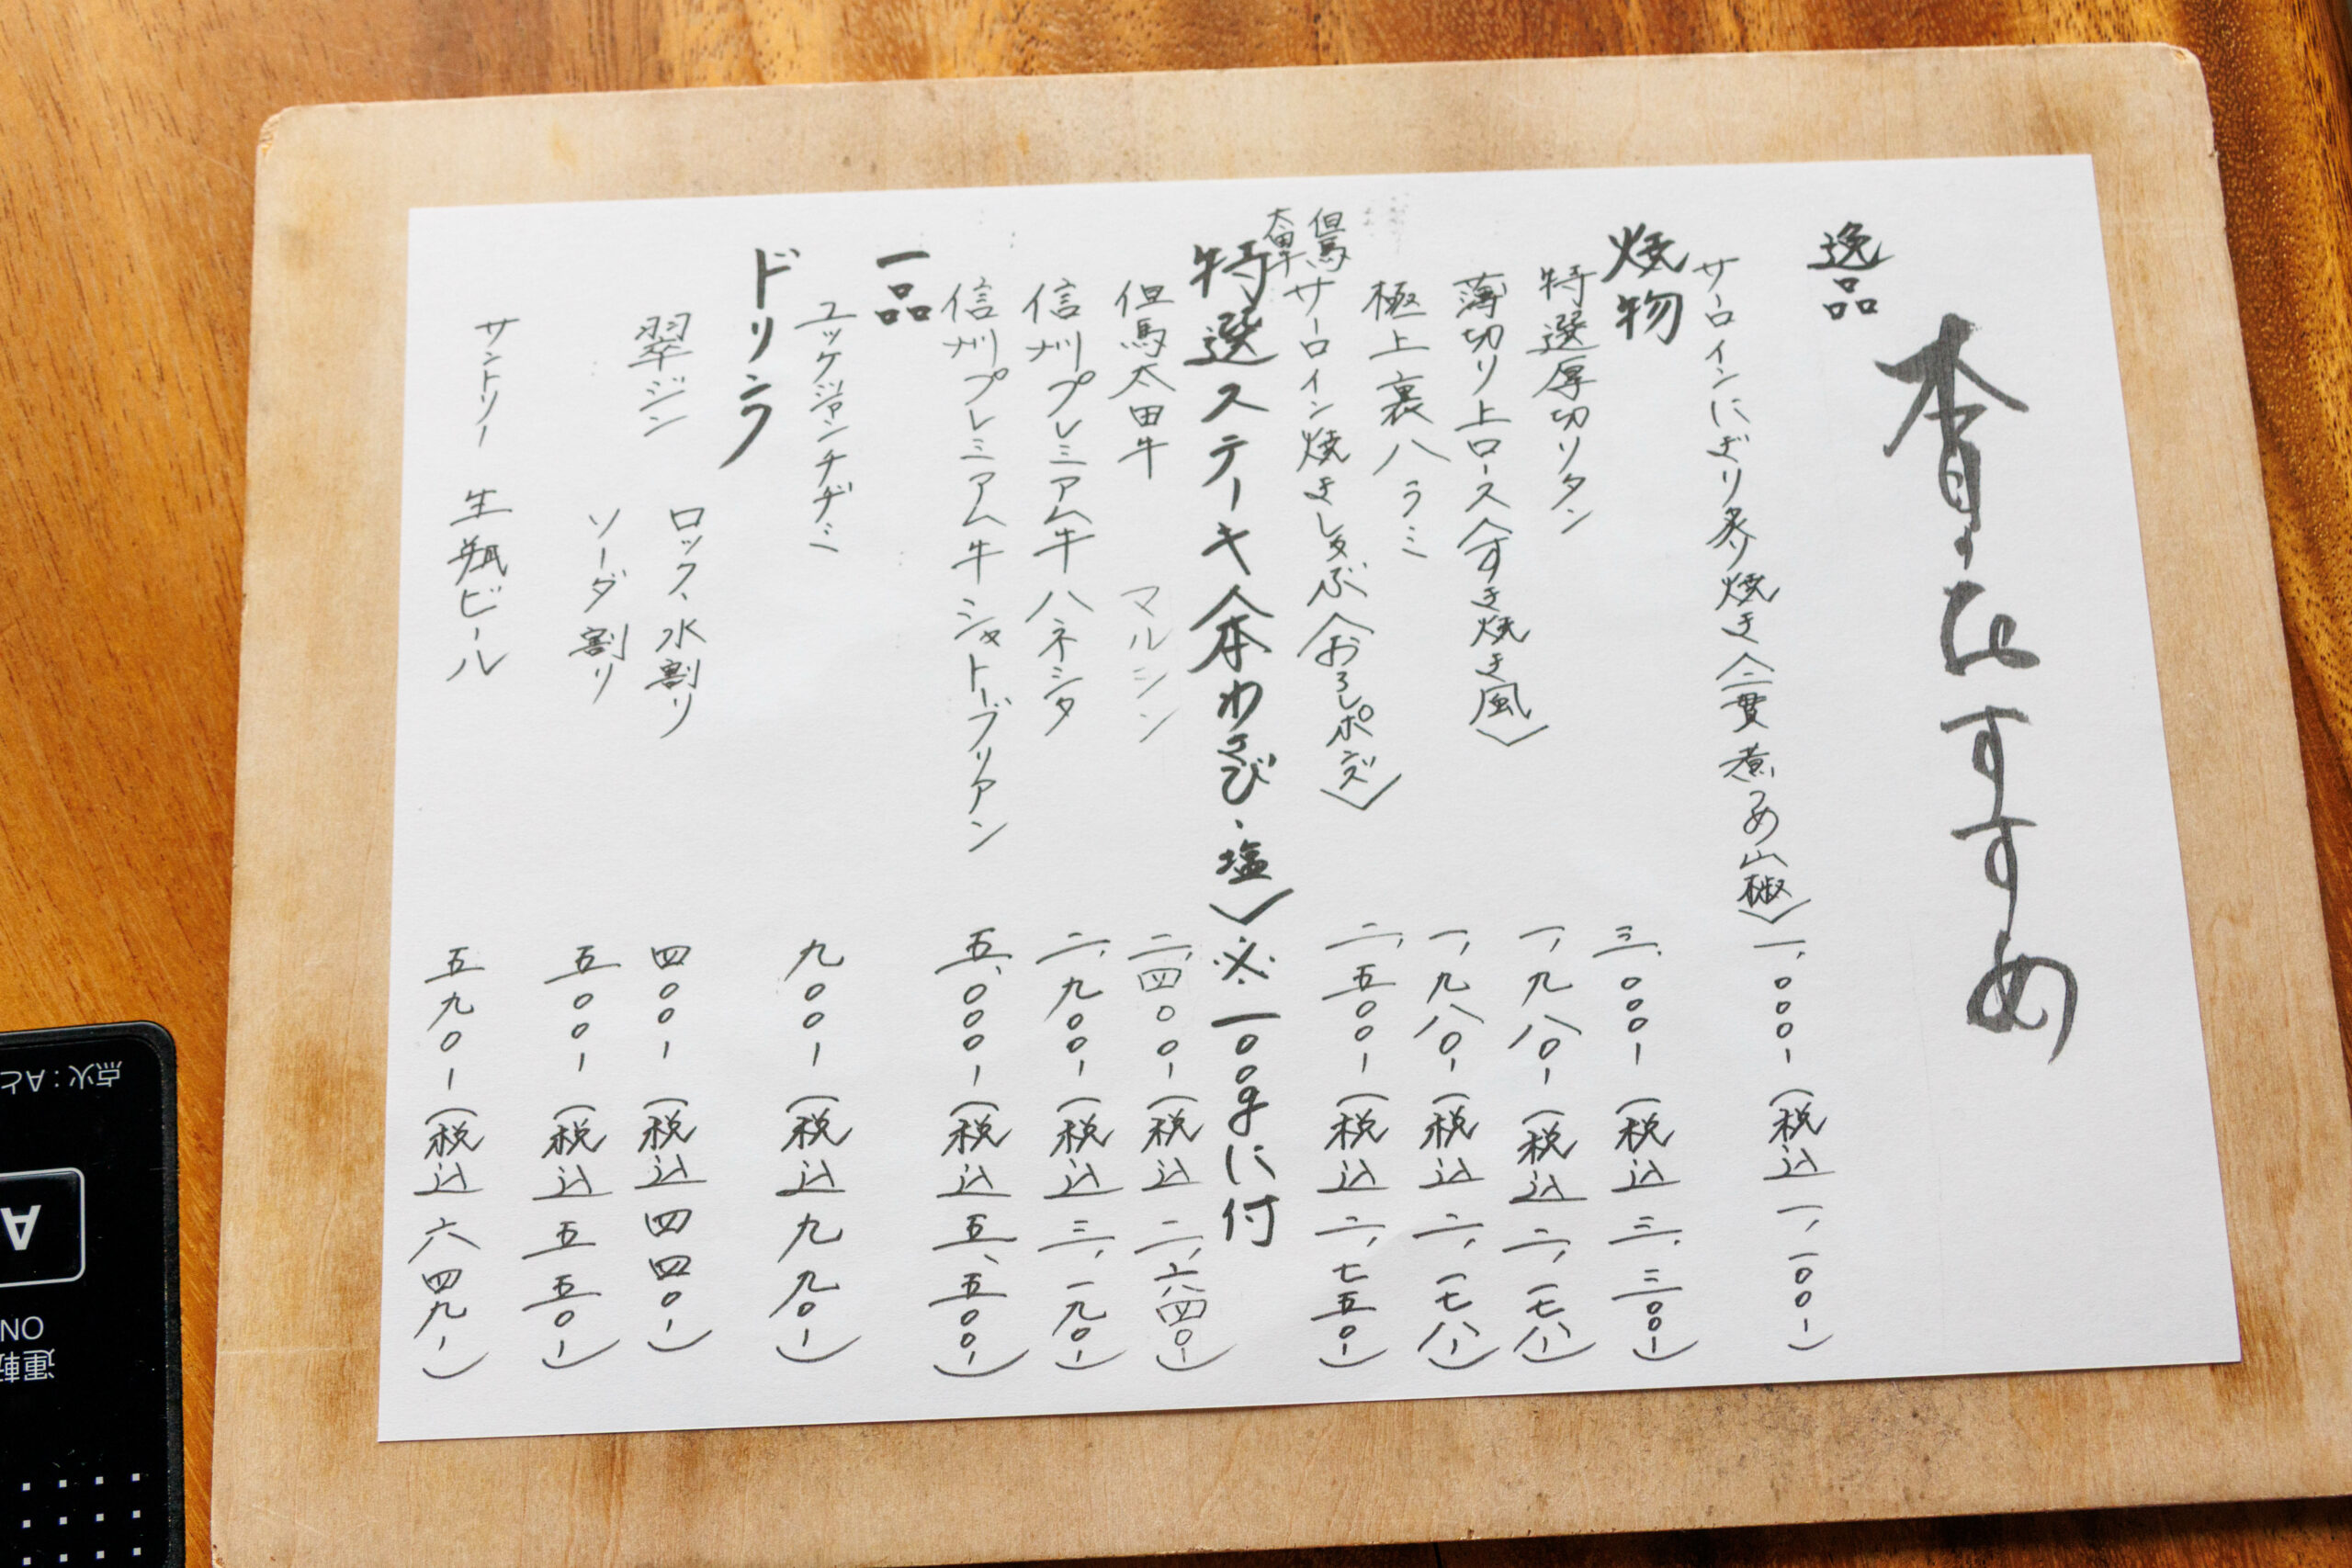 春のおすすめ
逸品
サーロインにぎり炙り焼き〈二貫 煮つめ山椒〉 一、〇〇〇ー(税込 一、一〇〇ー)
焼物
特選厚切りタン 三、〇〇〇ー(税込 三、三〇〇ー)
薄切り上ロース〈すき焼き風〉 一、九八〇ー(税込 二、一七八ー)
極上裏ハラミ 一、九八〇ー(税込 二、一七八ー)
但馬太田牛 サーロイン焼きしゃぶ〈おろしポン酢〉 二、五〇〇ー(税込 二、七五〇ー)
特選ステーキ〈本わさび、塩〉※一〇〇gに付
但馬太田牛 マルシン 二、四〇〇ー(税込 二、六四〇ー)
信州プレミアム牛 ハネシタ 二、九〇〇ー(税込 三、一九〇ー)
信州プレミアム牛 シャトーブリアン 五、〇〇〇ー(税込 五、五〇〇ー)
一品
ユッケジャンチヂミ 九〇〇ー(税込 九九〇ー)
ドリンク
翠ジン ロック、水割り 四〇〇ー(税込 四四〇ー)
ソーダ割り 五〇〇ー(税込 五五〇ー)
サントリー 生瓶ビール 五九〇ー(税込 六四九ー)
点火:Aと
A
ON
運転